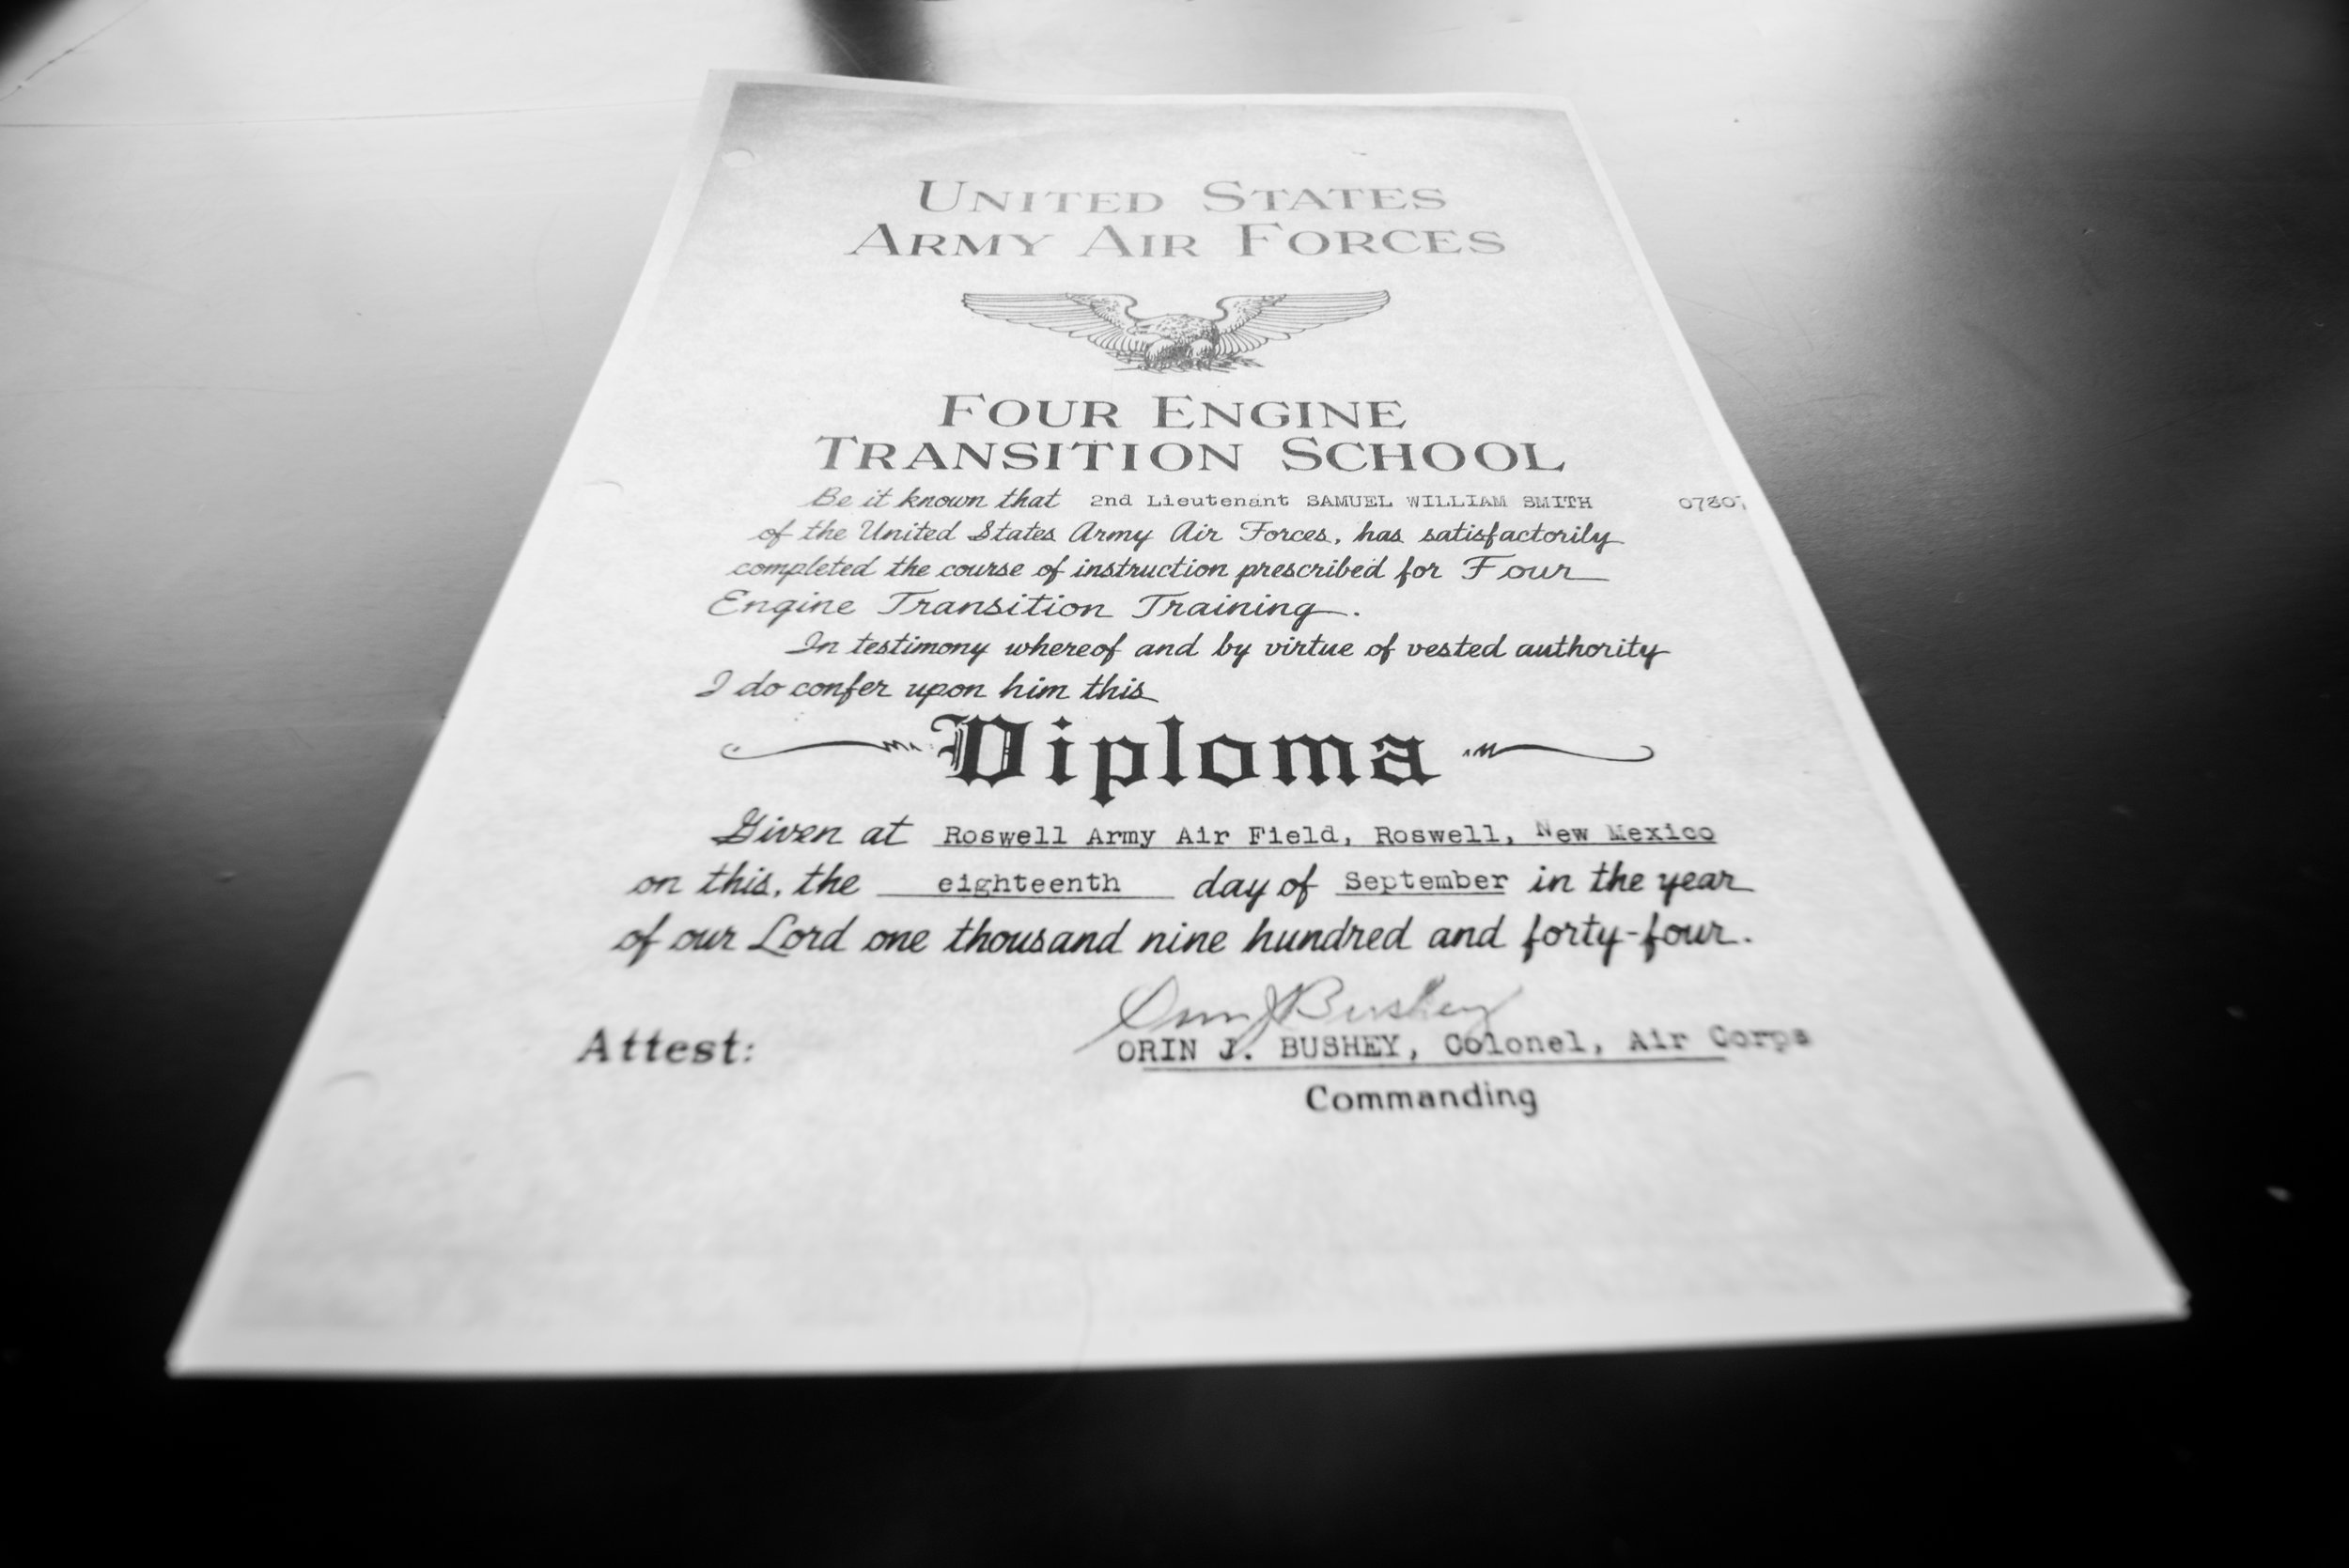 UNITED STATES
ARMY AIR FORCES
FOUR ENGINE
TRANSITION SCHOOL
Be it known that 2nd Lieutenant SAMUEL WILLIAM SMITH
of the United States Army Air Forces, has satisfactorily
completed the course of instruction prescribed for Four
Engine Transition Training.
In testimony whereof and by virtue of vested authority
I do confer upon him this
Diploma
Given at Roswell Army Air Field, Roswell, New Mexico
on this, the eighteenth day of September in the year
of our Lord one thousand nine hundred and forty-four.
Orin J Bushey
Attest: ORIN J. BUSHEY, Colonel, Air Corps
Commanding